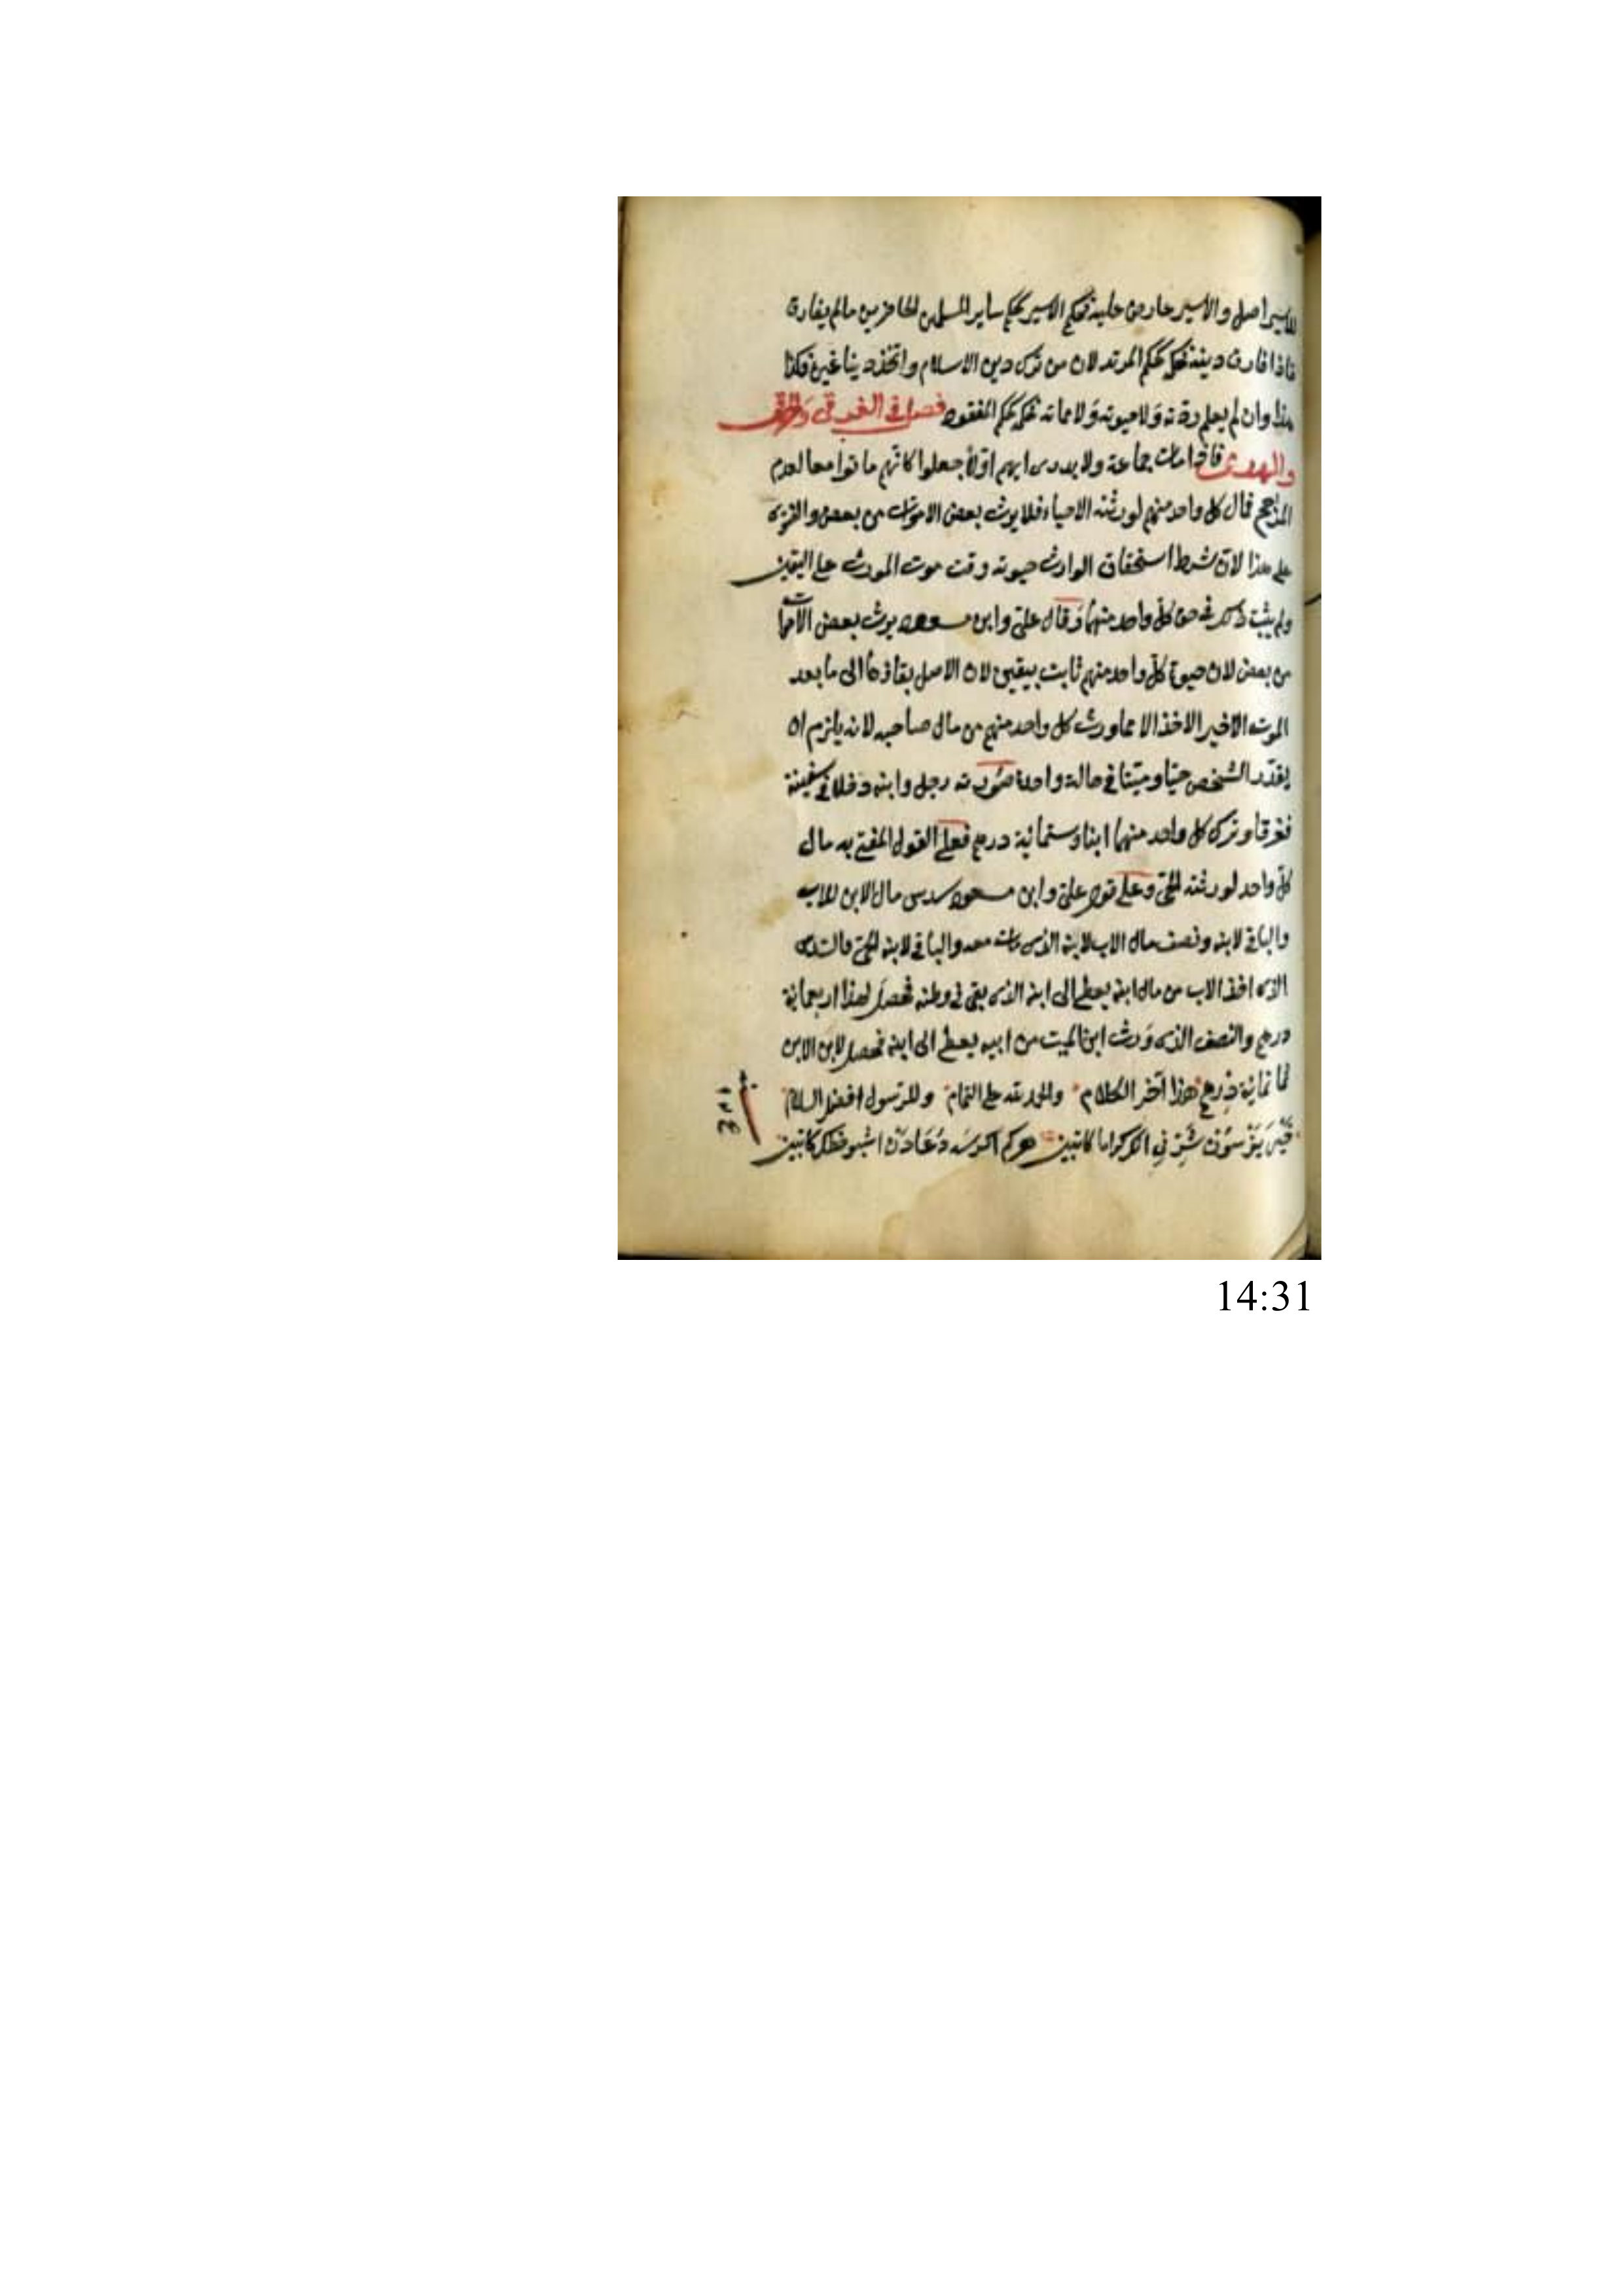 للاسير اصل والاسير عارض عليه فحكم الاسير كحكم ساير المسلمين الحاضرين مالم يفارق
فاذا فارق دينه فحكمه كحكم المرتد لان من ترك دين الاسلام واتخذ دينا غيره فكذا
هذا وان لم يعلم ردته ولا حيوته ولا مماته فحكمه كحكم المفقود فصل في الغرقى والحرقى
والهدمى فاذا مات جماعة ولا يدرى ايهم اولا جعلوا كانهم ماتوا معا لعدم
المرجح فمال كل واحد منهم لورثته الاحياء فلا يرث بعض الاموات من بعض والفتوى
على هذا لان شرط استحقاق الوارث حيوته وقت موت المورث على اليقين
ولم يثبت ذلك في حق كل واحد منهما وقال علي وابن مسعود يرث بعض الاموات
من بعض لان حيوة كل واحد منهم ثابت بيقين لان الاصل بقاؤها الى ما بعد
الموت الاخير الاخذ الا مما ورث كل واحد منهم من مال صاحبه لانه يلزم ان
يقدر الشخص حيا وميتا في حالة واحدة صورته رجل وابنه دخلا في سفينة
فغرقا وترك كل واحد منهما ابنا وستمائة درهم فعلى القول المفتى به مال
كل واحد لورثته الحي وعلى قول علي وابن مسعود سدس مال الابن للاب
والباقي لابنه ونصف مال الاب لابنه الذي مات معه والباقي لابنه الحي فالسدس
الذي اخذ الاب من مال ابنه يعطى الى ابنه الذي بقي في وطنه فحصل لهذا اربعمائة
درهم والنصف الذي ورث ابن الميت من ابيه يعطى الى ابنه فحصل لابن الابن
ثمانمائة درهم هذا آخر الكلام والحمد لله على التمام وللرسول افضل السلام
كراما كاتبين هركم اكرسه دعادن اشبو خطك كاتبين